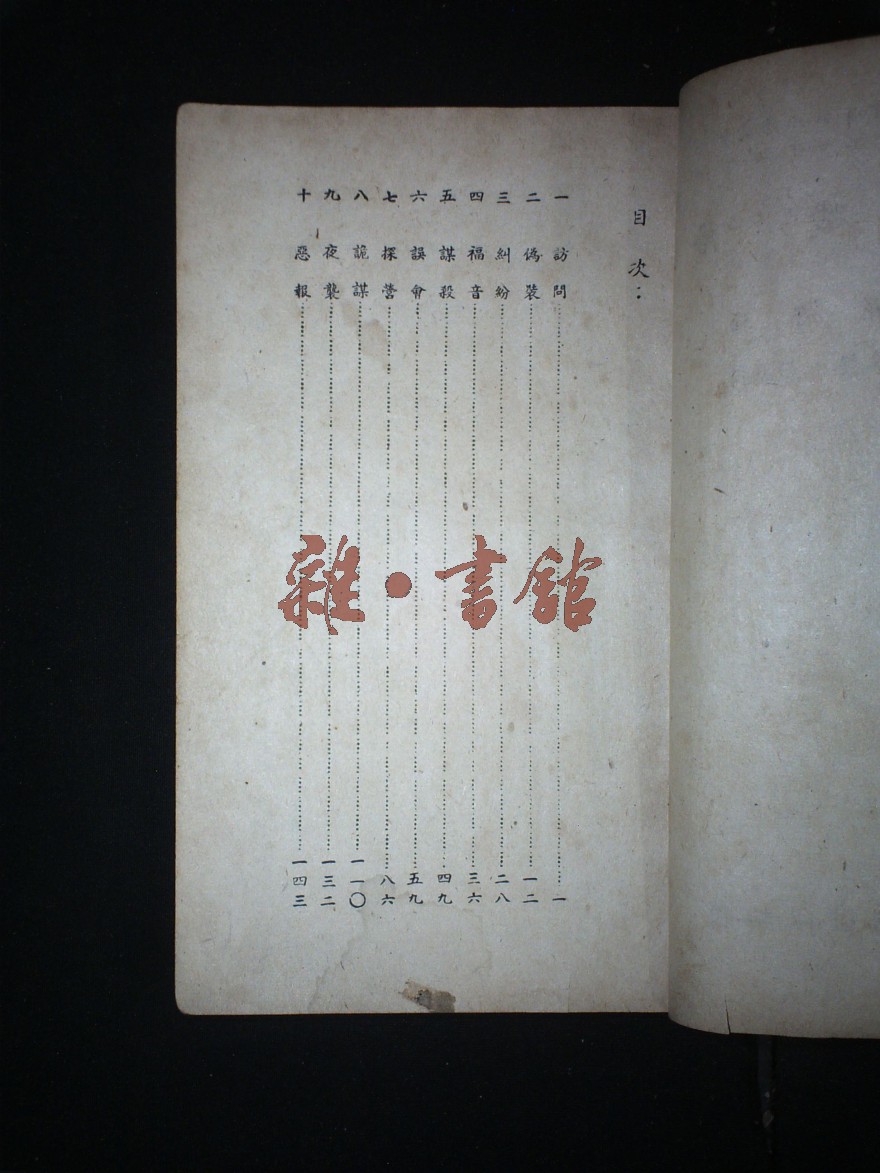 目次：
一 訪問…一
二 偽裝…一二
三 糾紛…二八
四 福音…三六
五 謀殺…四九
六 誤會…五九
七 探營…八六
八 詭謀…一一〇
九 夜襲…一三二
十 惡報…一四三
雜・書館